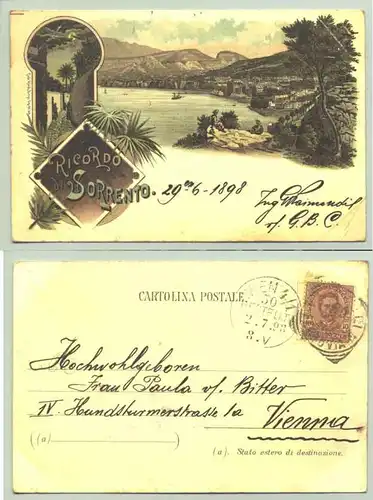 RICORDO
DI SORRENTO.
29 6-1898
Ing
v. G. B. C.
CARTOLINA POSTALE
WIEN
50
2.7.98
8.V
Hochwohlgeboren
Frau Paula v. Bitter
IV. Hundsturmerstrasse 1a
Vienna
(a)
(a). Stato estero di destinazione.